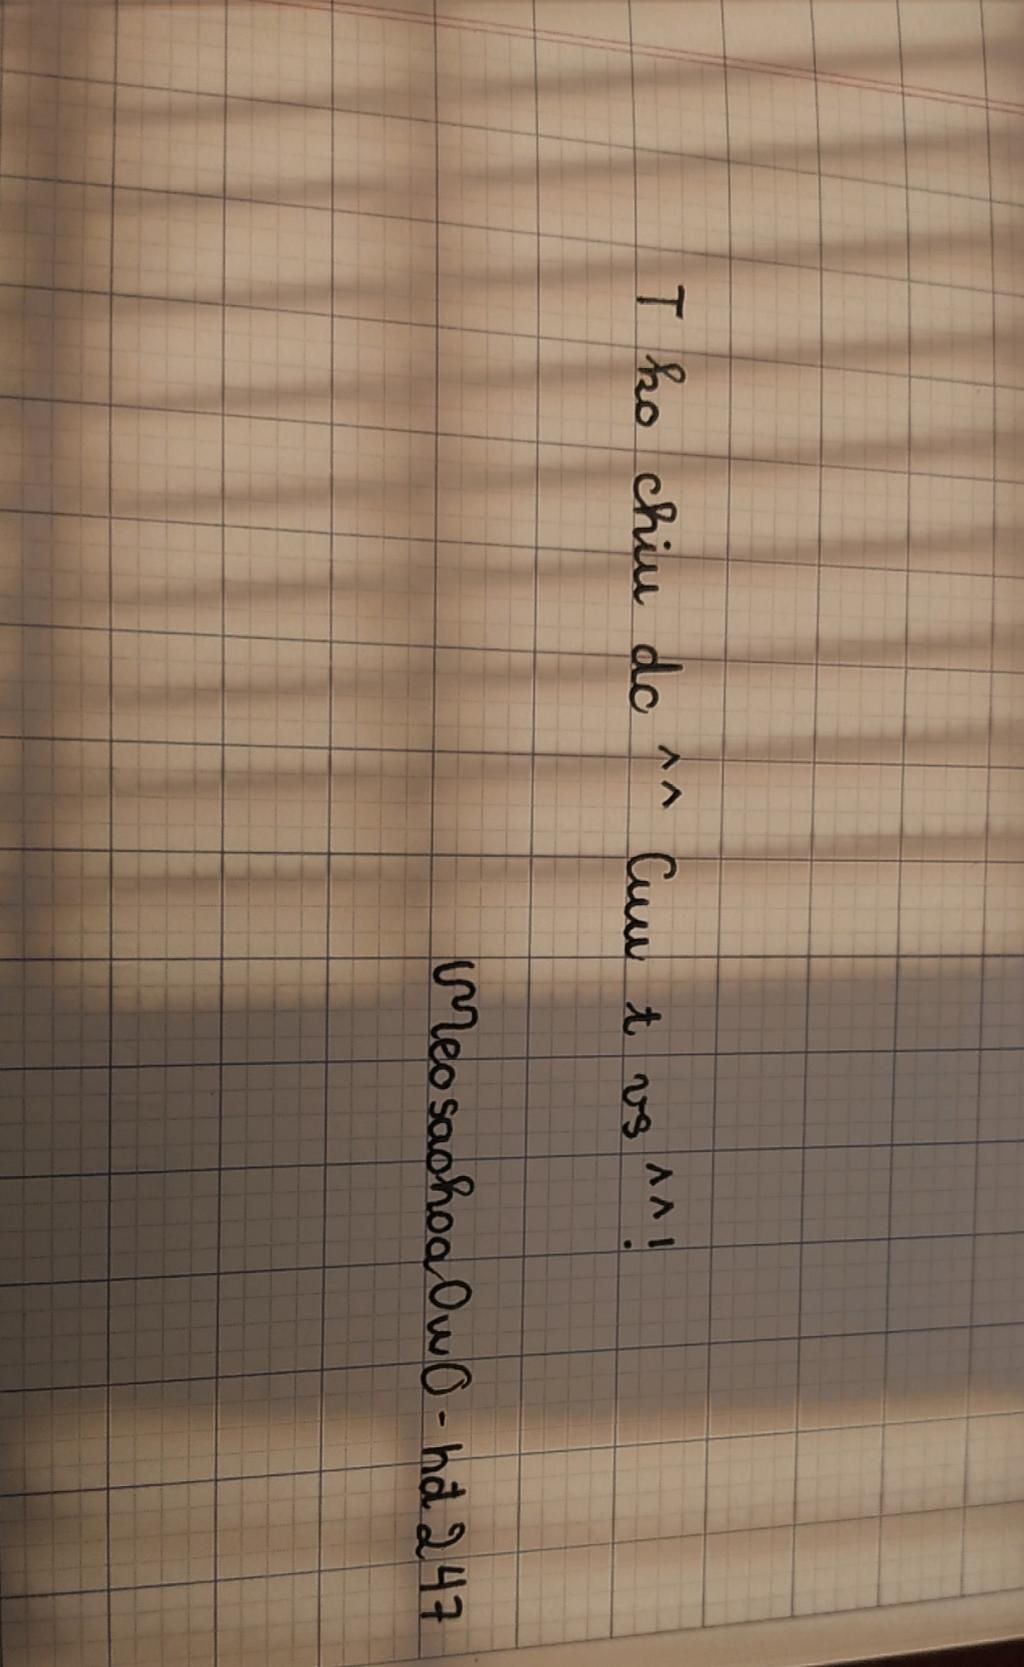 T ko chiu dc ^^ Cuu t vs ^^!
MeosaohoaOwO - hđ247